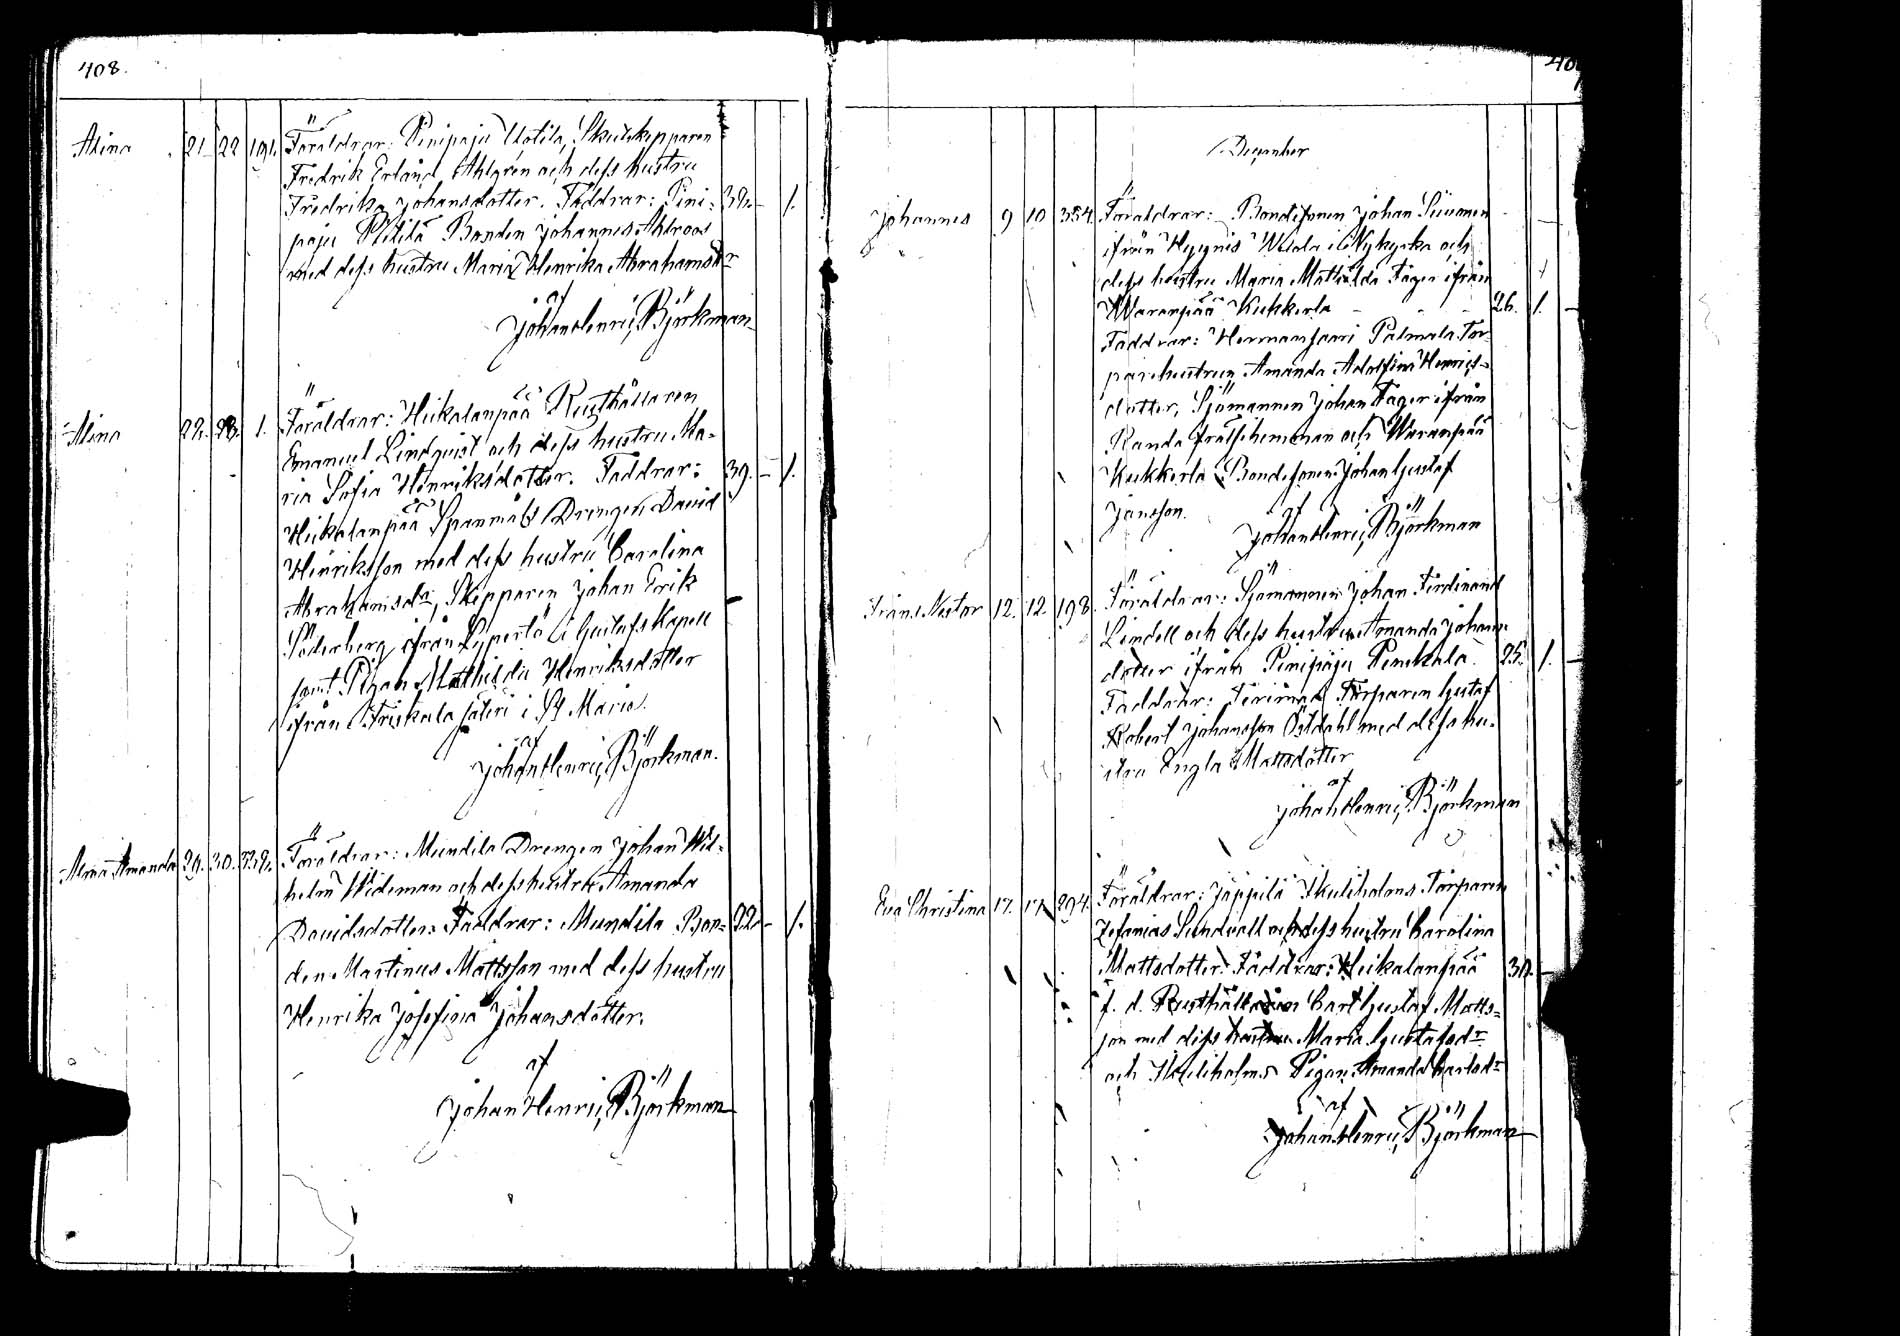 408.
Alina 21 22 191. Föräldrar: Pinipaju Uotila, Skutskepparen
Fredrik Erland Ahlgren och dess hustru
Fredrika Johansdotter. Faddrar: Pini- 38. – 1.
paju Bonden Johannes Ahlroos
med dess hustru Maria Henrika Abrahamsdr
af
Johan Henric Björkman
Alina 22. 23. 1. Föräldrar: Heikalanpää Rusthållaren
Emanuel Lindquist och dess hustru Ma-
ria Sofia Henriksdotter. Faddrar: 39. – 1.
Heikalanpää Spanmåls Drengen David
Henriksson med dess hustru Carolina
Abrahamsdr, Skepparen Johan Erik
Söderberg ifrån Lypertö i Gustafs Kapell
samt Pigan Mathilda Henriksdotter
ifrån Friskala säteri i St Marie.
af
Johan Henric Björkman.
Alma Amanda 29. 30. 332. Föräldrar: Mundila Drengen Johan Wil-
helm Wideman och dess hustru Amanda
Davidsdotter. Faddrar: Mundila Bon- 22. – 1.
den Martinus Mattsson med dess hustru
Henrika Josefina Johansdotter.
af
Johan Henric Björkman
40
December
Johannes 9 10 354. Föräldrar: Bondesonen Johan Siivonen
ifrån Wehla i Nykyrka och
dess hustru Maria Mathilda Fager ifrån
Waranpää Kukkerla 26. 1. –
Faddrar: Hermansaari Palmala Tor-
parehustrun Amanda Adolfina Henriks-
dotter, Sjömannen Johan Fager ifrån
Randa frälsehemman och Waranpää
Kukkerla Bondesonen Johan Gustaf
Jansson.
af
Johan Henric Björkman
Frans Nestor 12. 12. 198. Föräldrar: Sjömannen Johan Ferdinand
Lindell och dess hustru Amanda Johans-
dotter ifrån Pinipaju Penikala. 25. 1. –
Faddrar: Torparen Gustaf
Robert Johansson Östdahl med dess hu-
stru Engla Mattsdotter
af
Johan Henric Björkman
Eva Christina 17. 17. 294. Föräldrar: Jäppilä Skuliholms Torparen
Zefanias Sundvall och dess hustru Carolina
Mattsdotter. Faddrar: Heikalanpää 30. –
f. d. Rusthållaren Carl Gustaf Matts-
son med dess hustru Maria Gustafsdr
och Skuliholms Pigan Amanda Carlsdr
af
Johan Henric Björkman